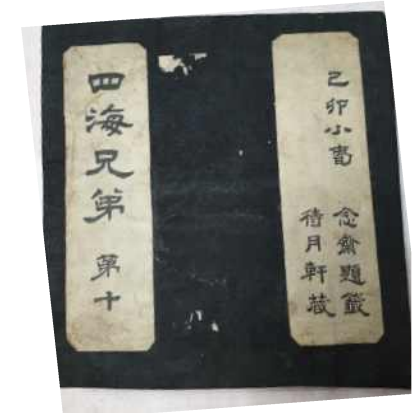 己卯小春
念齋題籤
待月軒藏
四海兄弟 第十